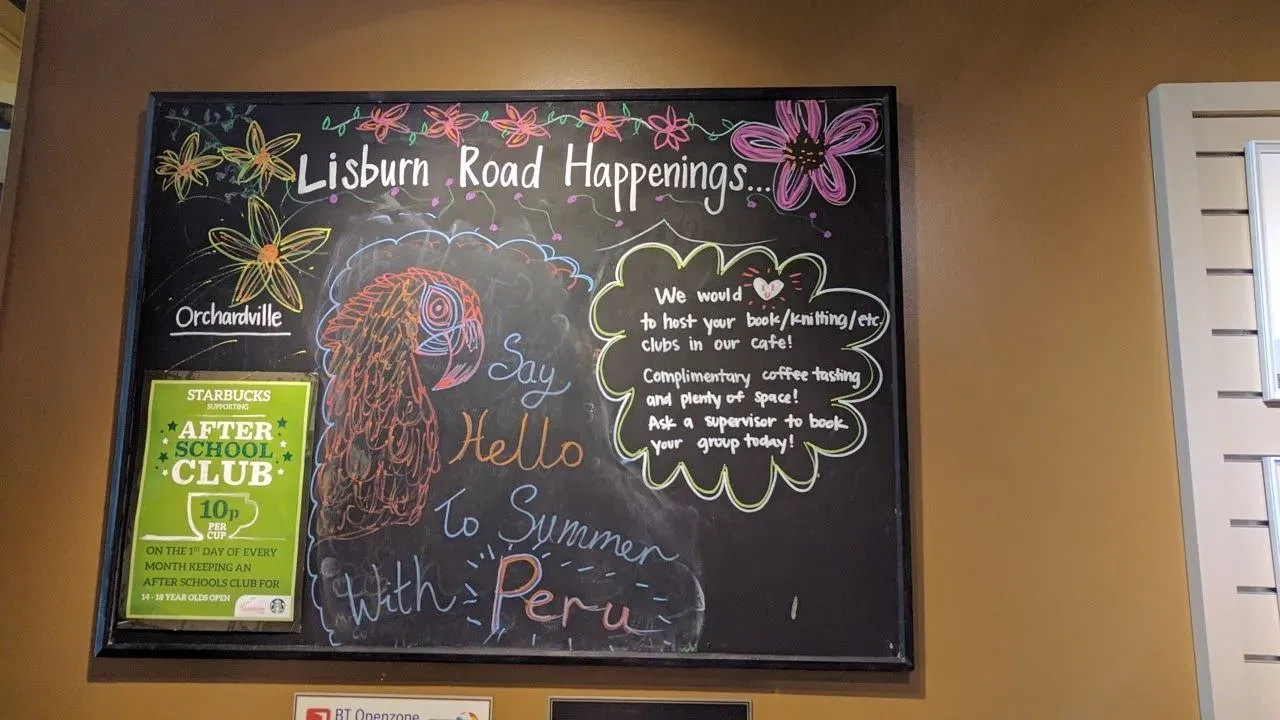 Lisburn Road Happenings...
Orchardville
STARBUCKS
SUPPORTING
AFTER
SCHOOL
CLUB
10p
PER
CUP
ON THE 1ST DAY OF EVERY
MONTH KEEPING AN
AFTER SCHOOLS CLUB FOR
14 - 18 YEAR OLDS OPEN
Say
Hello
To Summer
With Peru
We would
to host your book/knitting/etc
clubs in our cafe!
Complimentary coffee tasting
and plenty of space!
Ask a supervisor to book
your group today!
BT Openzone